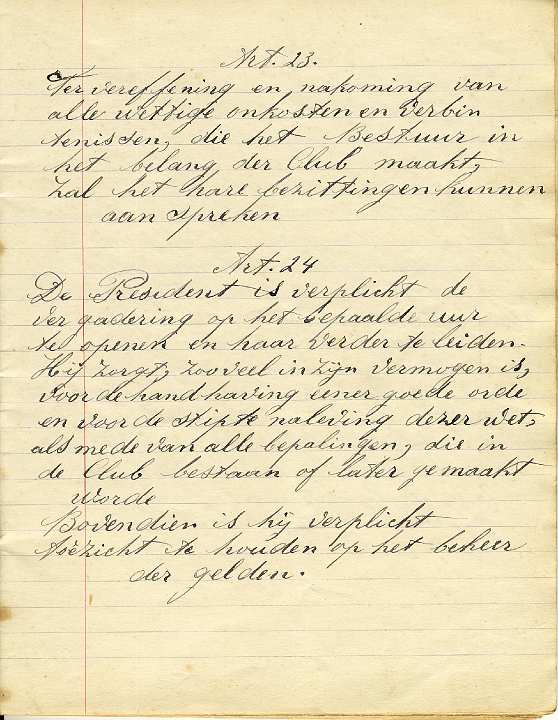 Art. 23.
Ter vereffening en nakoming van
alle wettige onkosten en verbin
tenissen, die het Bestuur in
het belang der Club maakt,
zal het hare bezittingen kunnen
aan spreken
Art. 24
De President is verplicht de
ver gadering op het bepaalde uur
te openen en haar verder te leiden.
Hij zorgt, zooveel in zijn vermogen is,
voor de hand having eener goede orde
en voor de stipte naleving dezer wet,
als mede van alle bepalingen, die in
de Club bestaan of later gemaakt
worde
Bovendien is hij verplicht
toezicht te houden op het beheer
der gelden.